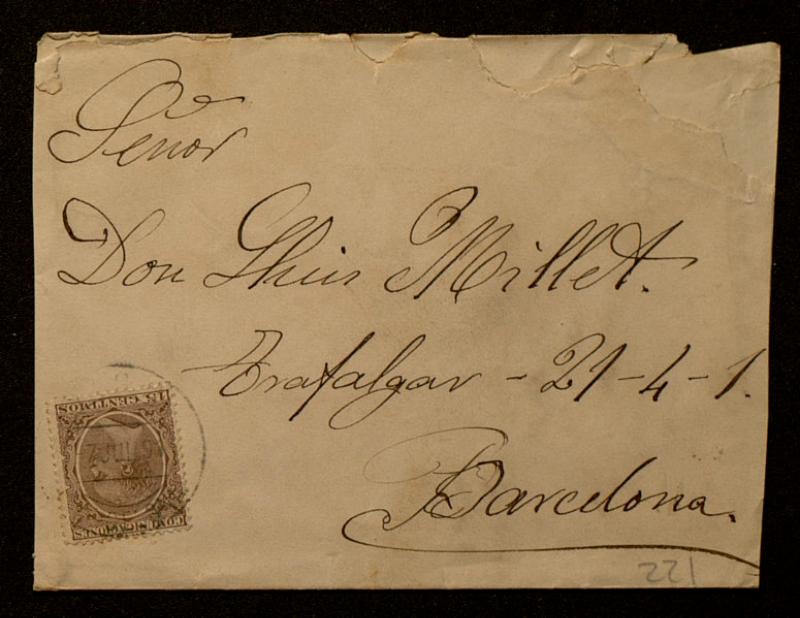 Señor
Don Lluis Millet.
Trafalgar - 21-4-1.
Barcelona.
15 CENTIMOS
COMUNICACIONES
221